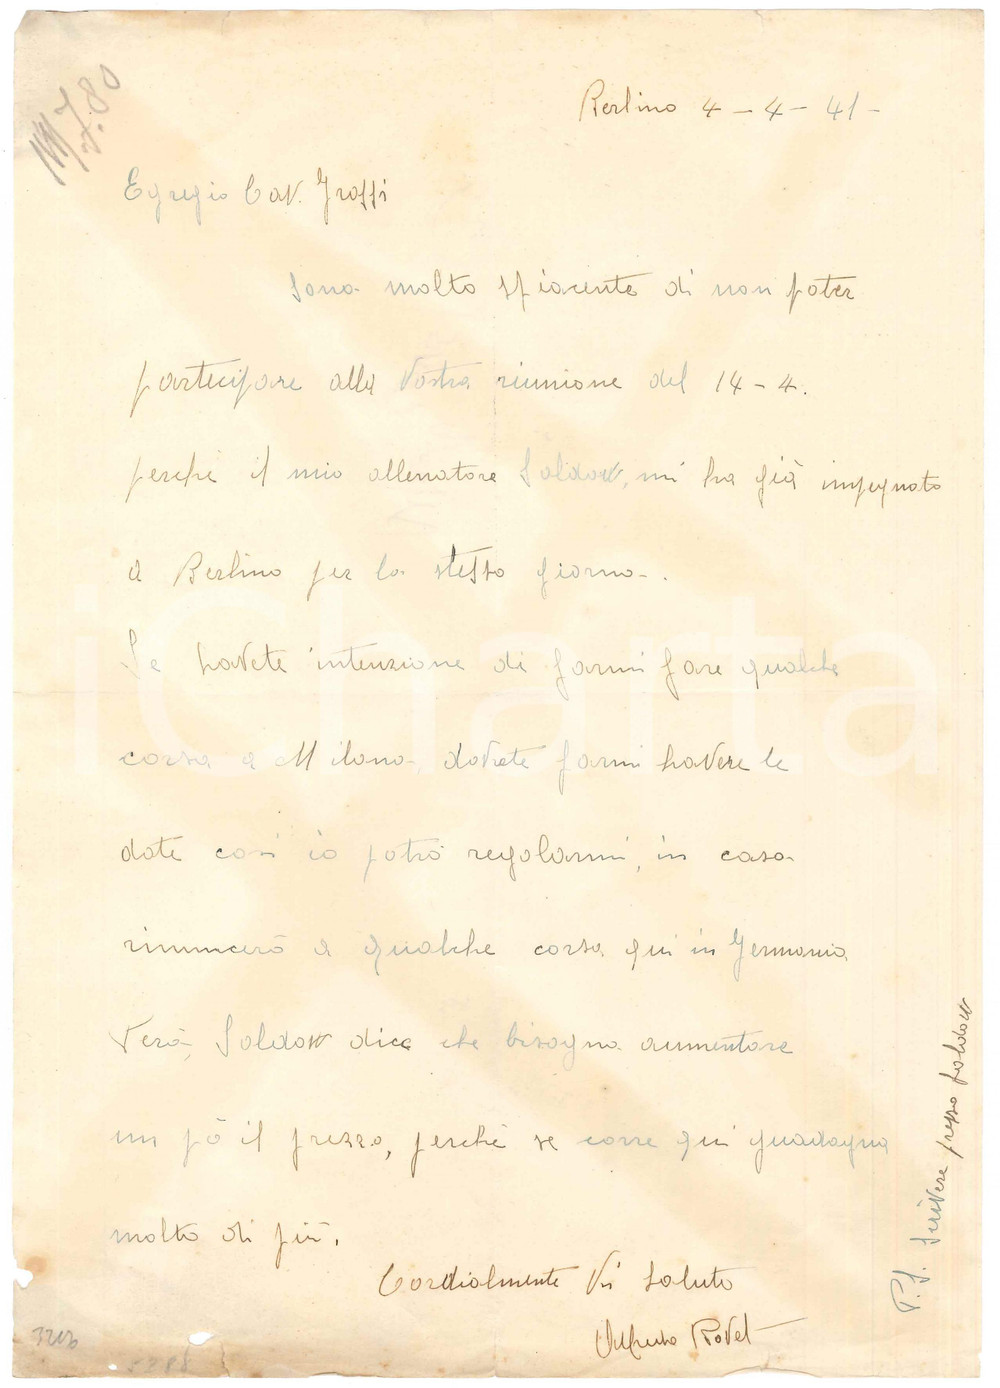 Berlino 4 - 4 - 41 -
Egregio Cav. Graffi
Sono molto spiacente di non poter
partecipare alla Vostra riunione del 14 - 4.
perchè il mio allenatore Saldow, mi ha già impegnato
a Berlino per lo stesso giorno - .
Se havete intenzione di farmi fare qualche
corsa a Milano, dovrete farmi havere le
date così io potrò regolarmi, in caso
rinuncerò a qualche corsa qui in Germania
Però, Saldow dice che bisogna aumentare
un pò il prezzo, perchè se corre qui guadagna
molto di più.
Cordialmente Vi saluto
Alfredo Bovet
P.S. Scrivere presso Saldow
iCharta
3203